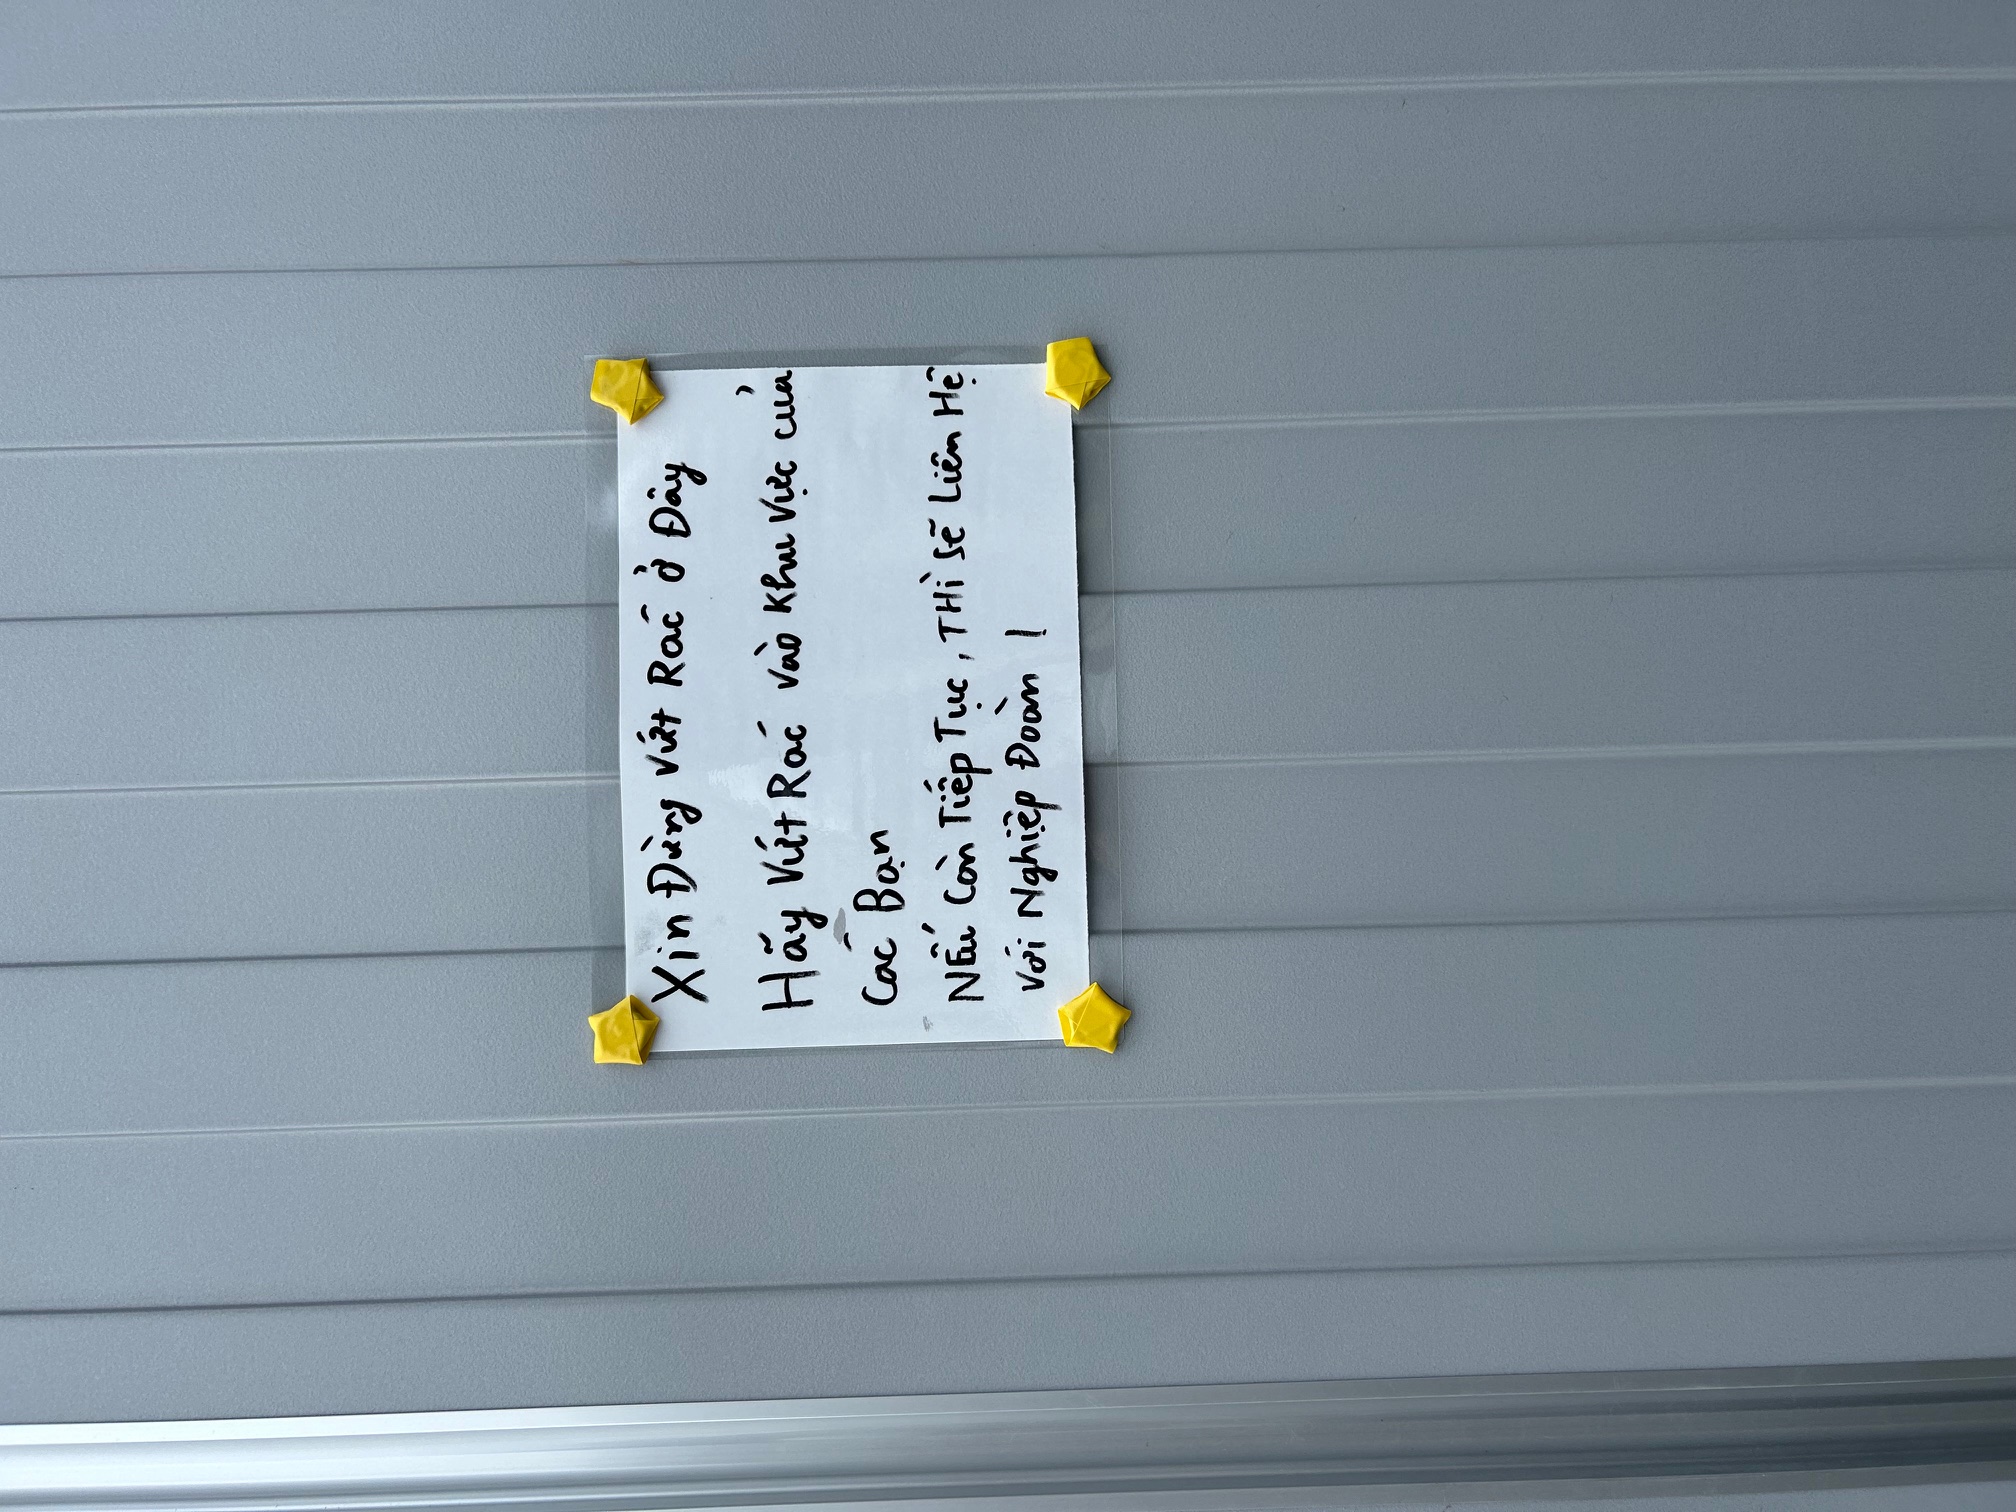 Xin Đừng Vứt Rác ở Đây
Hãy Vứt Rác Vào Khu Vực của
Các Bạn
Nếu Còn Tiếp Tục, THì Sẽ Liên Hệ
Với Nghiệp Đoàn !